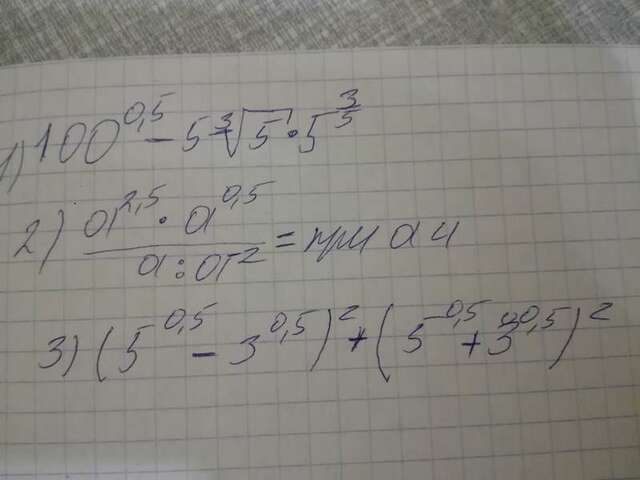 1) 100^0,5 - 5 ∛5 · 5^(3/5)
2) (a^2,5 · a^0,5)/(a : a^2) = при a 4
3) (5^0,5 - 3^0,5)^2 + (5^0,5 + 3^0,5)^2